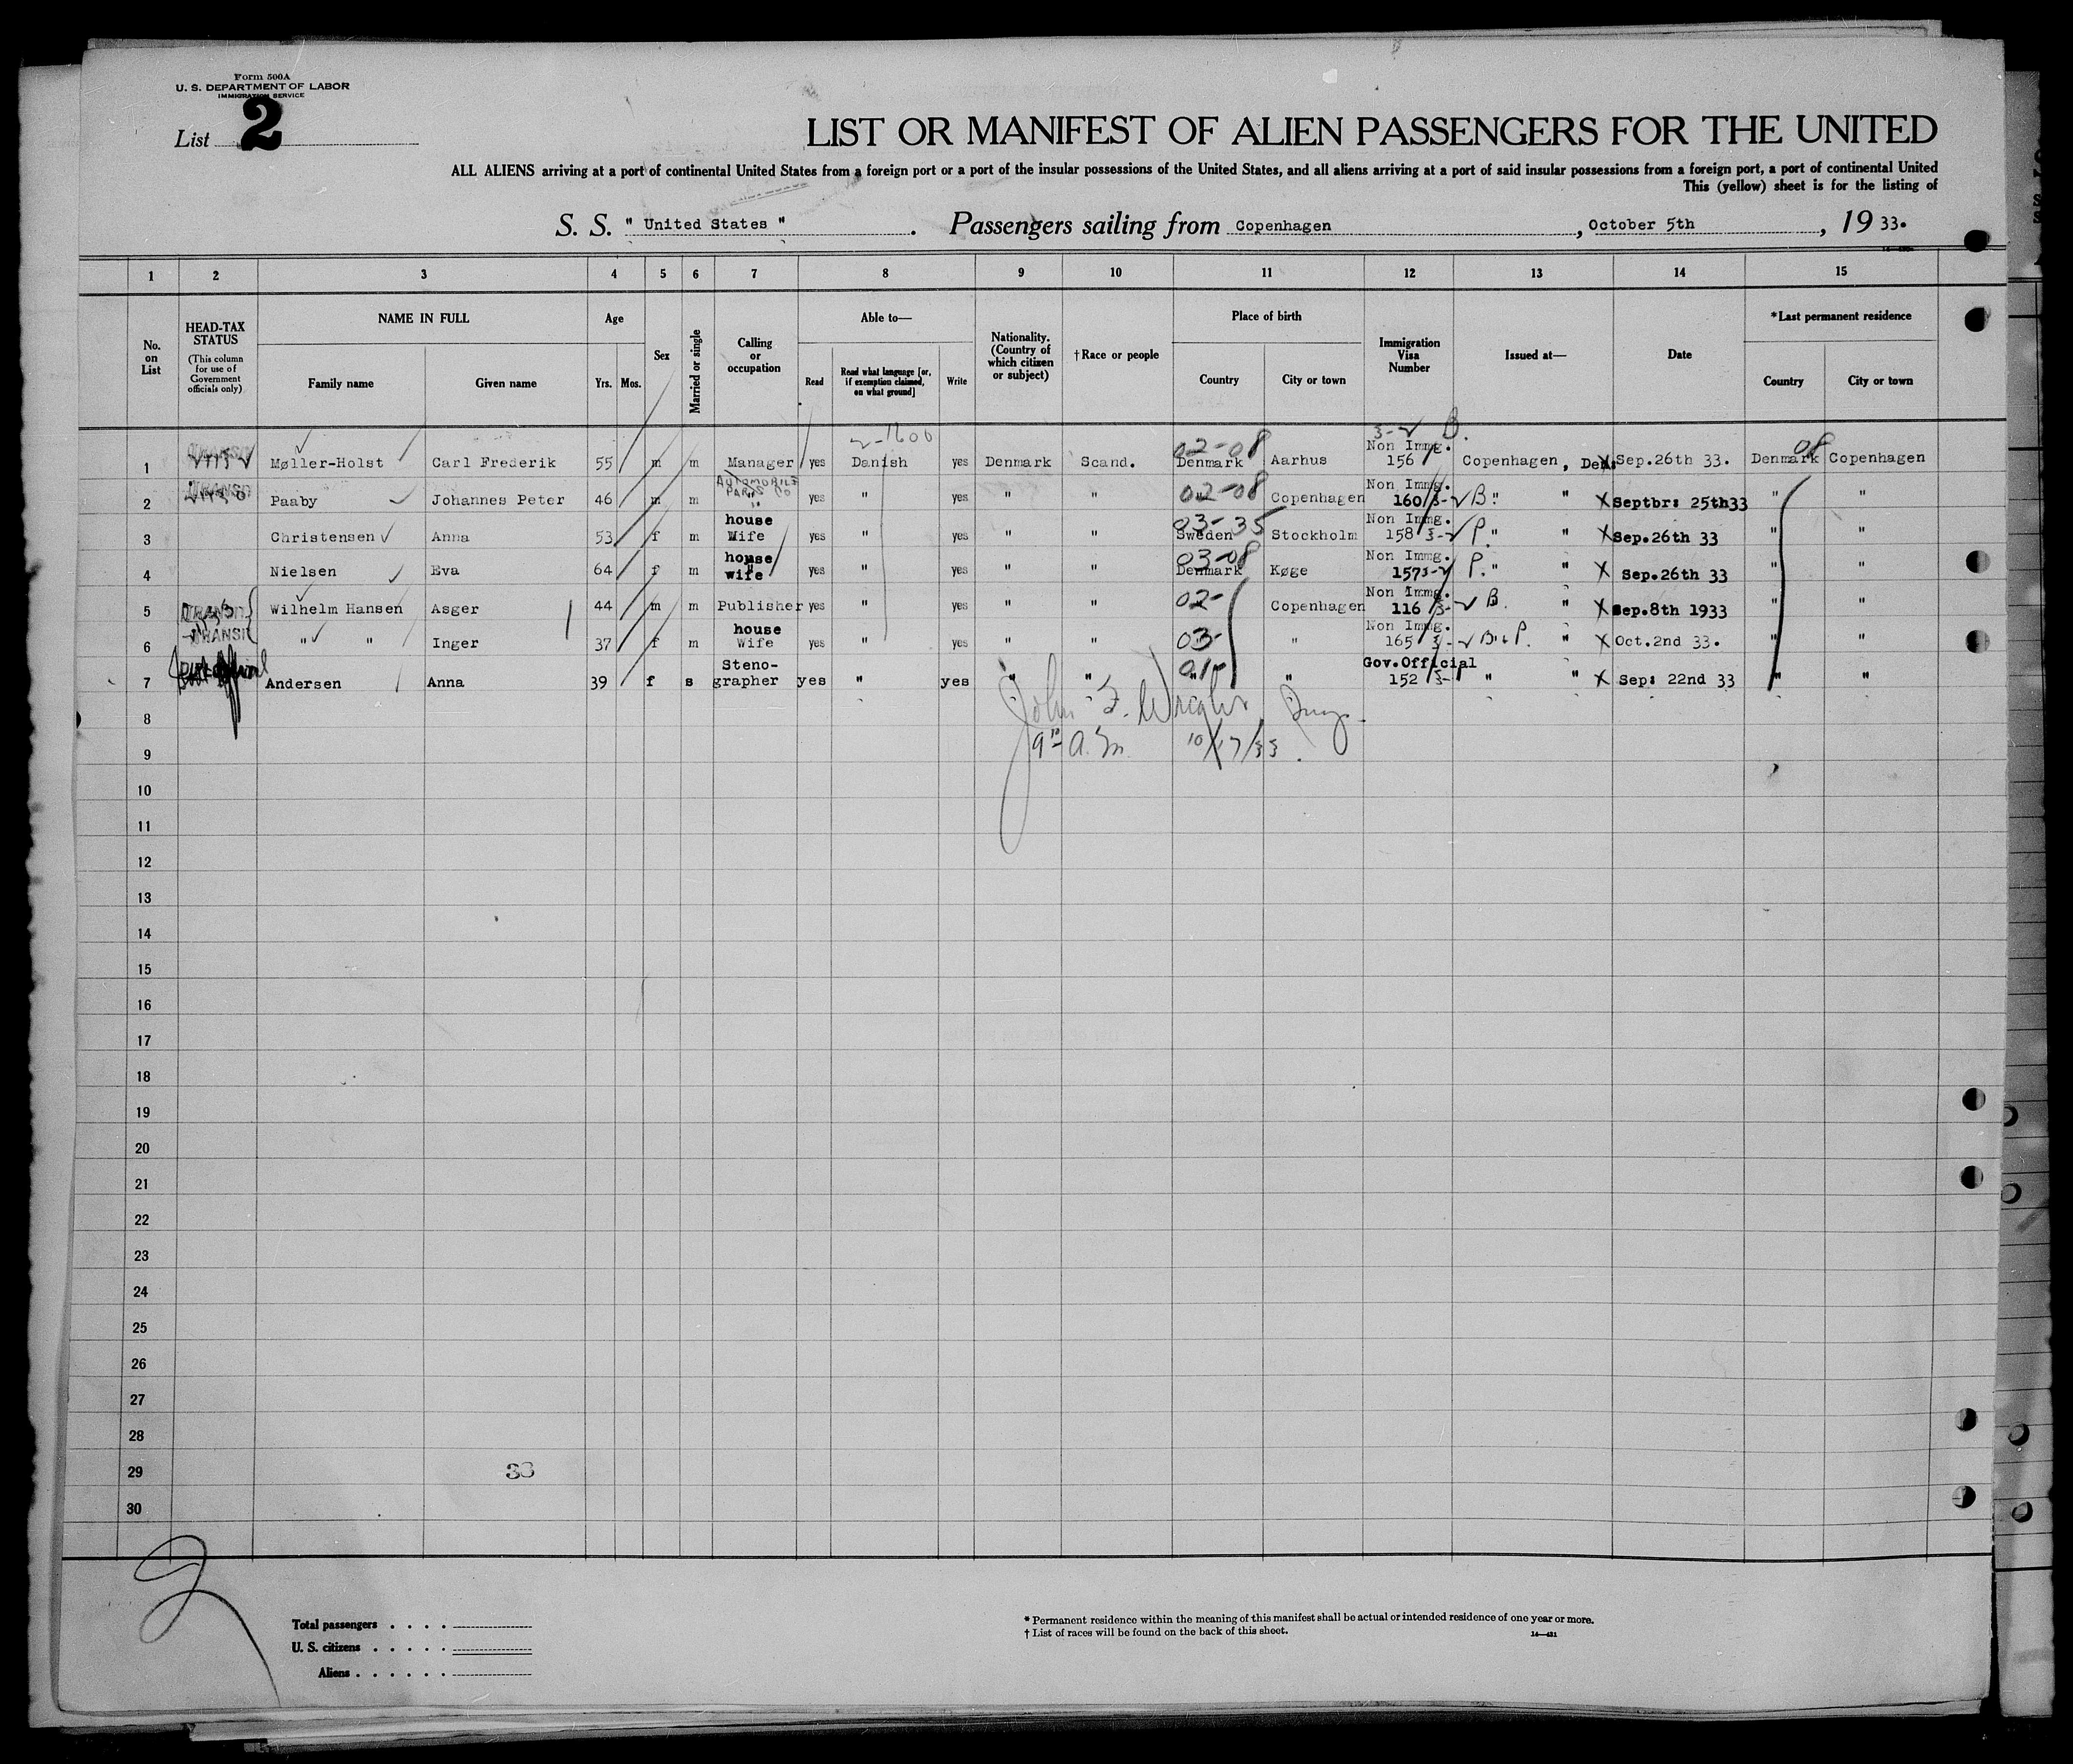 Form 500A
U. S. DEPARTMENT OF LABOR
IMMIGRATION SERVICE
List 2
LIST OR MANIFEST OF ALIEN PASSENGERS FOR THE UNITED
ALL ALIENS arriving at a port of continental United States from a foreign port or a port of the insular possessions of the United States, and all aliens arriving at a port of said insular possessions from a foreign port, a port of continental United
This (yellow) sheet is for the listing of
S. S. " United States ". Passengers sailing from Copenhagen, October 5th, 19 33.
1 2 3 4 5 6 7 8 9 10 11 12 13 14 15
No. on List
HEAD-TAX STATUS (This column for use of Government officials only)
NAME IN FULL Family name Given name
Age Yrs. Mos.
Sex
Married or single
Calling or occupation
Able to— Read Read what language [or, if exemption claimed, on what ground] Write
Nationality. (Country of which citizen or subject)
† Race or people
Place of birth Country City or town
Immigration Visa Number
Issued at—
Date
*Last permanent residence Country City or town
2-1600 3-✓ B.
1 TRANSIT Møller-Holst Carl Frederik 55 m m Manager yes Danish yes Denmark Scand. 02-08 Denmark Aarhus Non Immg. 156 Copenhagen, Den. Sep.26th 33. 08 Denmark Copenhagen
2 TRANSIT Paaby Johannes Peter 46 m m AUTOMOBILE PARTS CO " yes " yes " " 02-08 " Copenhagen Non Immg. 160 3-✓ B. " " X Septbr: 25th33 " "
3 Christensen Anna 53 f m house Wife yes " yes " " 03-35 Sweden Stockholm Non Immg. 158 3-✓ P. " " X Sep.26th 33 " "
4 Nielsen Eva 64 f m house wife yes " yes " " 03-08 Denmark Køge Non Immg. 157 3-✓ P. " " X Sep.26th 33 " "
5 TRANSIT Wilhelm Hansen Asger 44 m m Publisher yes " yes " " 02- Copenhagen Non Immg. 116 3-✓ B. " X Sep.8th 1933 " "
6 TRANSIT " " Inger 37 f m house Wife yes " yes " " 03- " Non Immg. 165 3-✓ B. & P. " X Oct.2nd 33. " "
7 Andersen Anna 39 f s Steno-grapher yes " yes " " 01- " " Gov.Official 152 3- " " X Sep: 22nd 33 " "
8
John F. Wright
9
9 10 A.M. 10/17/33.
10
11
12
13
14
15
16
17
18
19
20
21
22
23
24
25
26
27
28
29 33
30
2
Total passengers
U. S. citizens
Aliens
* Permanent residence within the meaning of this manifest shall be actual or intended residence of one year or more.
† List of races will be found on the back of this sheet.
14—431